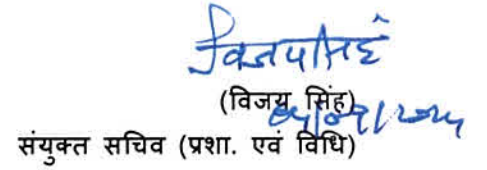 विजय सिंह
(विजय सिंह)
संयुक्त सचिव (प्रशा. एवं विधि)